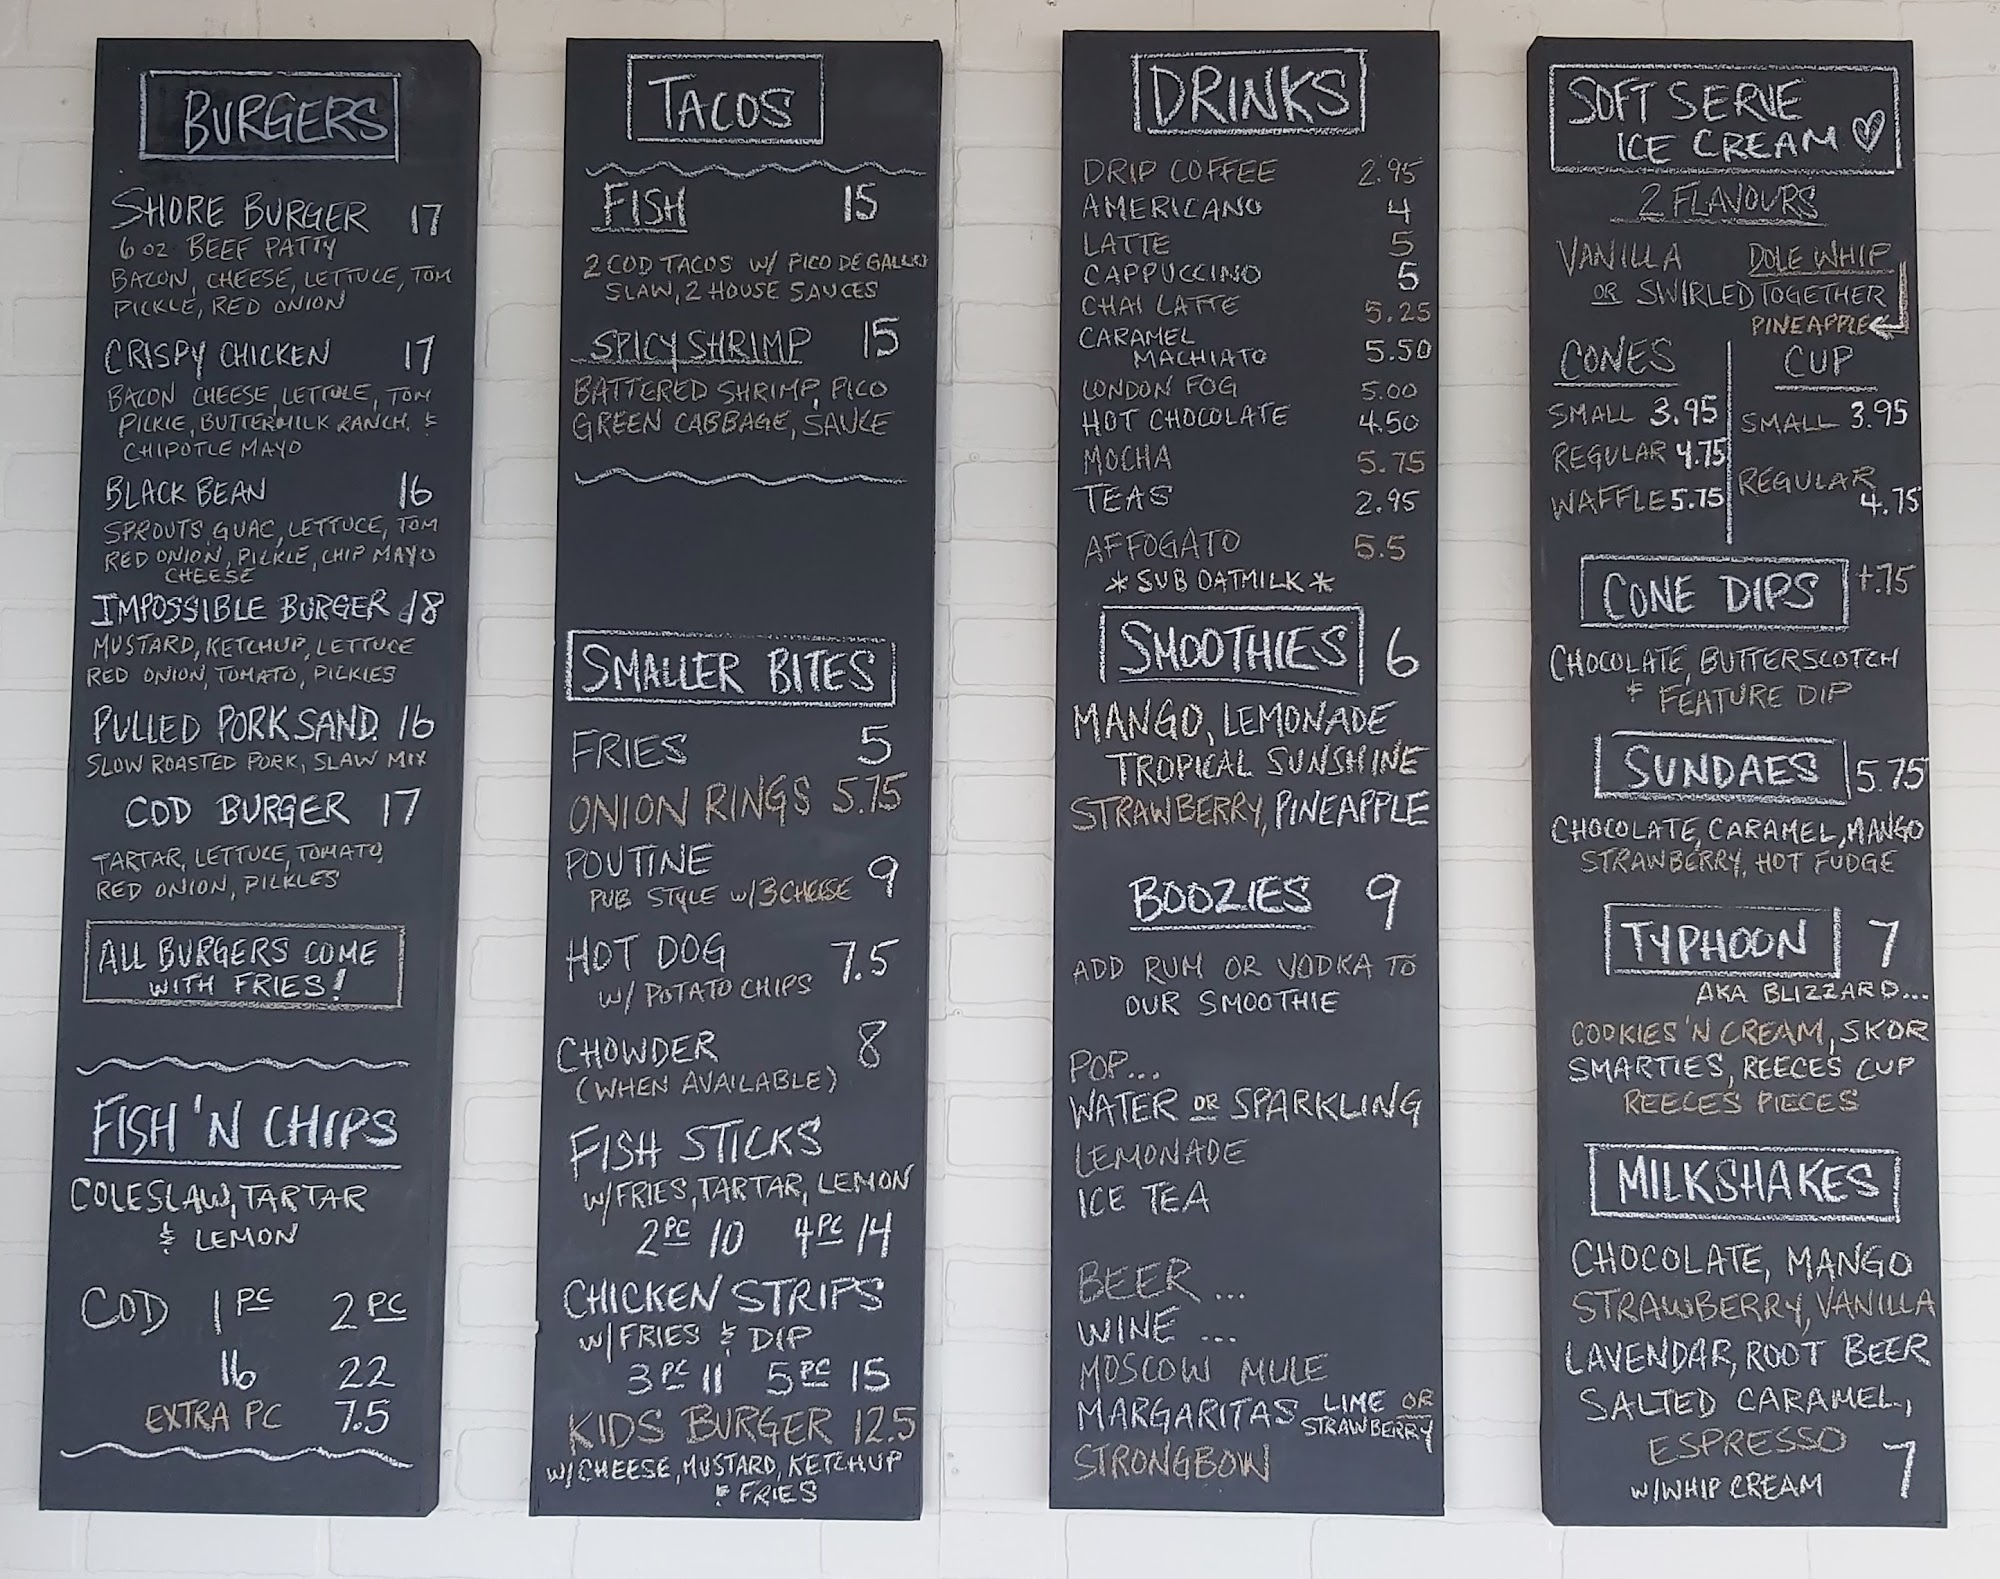 BURGERS
SHORE BURGER 17
6 OZ BEEF PATTY
BACON, CHEESE, LETTUCE, TOM
PICKLE, RED ONION
CRISPY CHICKEN 17
BACON CHEESE, LETTUCE, TOM
PICKLE, BUTTERMILK RANCH, &
CHIPOTLE MAYO
BLACK BEAN 16
SPROUTS, GUAC, LETTUCE, TOM
RED ONION, PICKLE, CHIP MAYO
CHEESE
IMPOSSIBLE BURGER 18
MUSTARD, KETCHUP, LETTUCE
RED ONION, TOMATO, PICKLES
PULLED PORK SAND. 16
SLOW ROASTED PORK, SLAW MIX
COD BURGER 17
TARTAR, LETTUCE, TOMATO,
RED ONION, PICKLES
ALL BURGERS COME
WITH FRIES!
FISH 'N CHIPS
COLESLAW, TARTAR
& LEMON
COD 1 PC 2 PC
16 22
EXTRA PC 7.5
TACOS
FISH 15
2 COD TACOS W/ PICO DE GALLO
SLAW, 2 HOUSE SAUCES
SPICY SHRIMP 15
BATTERED SHRIMP, PICO
GREEN CABBAGE, SAUCE
SMALLER BITES
FRIES 5
ONION RINGS 5.75
POUTINE 9
PUB STYLE W/ 3 CHEESE
HOT DOG 7.5
W/ POTATO CHIPS
CHOWDER 8
(WHEN AVAILABLE)
FISH STICKS
W/FRIES, TARTAR, LEMON
2 PC 10 4 PC 14
CHICKEN STRIPS
W/FRIES & DIP
3 PC 11 5 PC 15
KIDS BURGER 12.5
W/CHEESE, MUSTARD, KETCHUP
& FRIES
DRINKS
DRIP COFFEE 2.95
AMERICANO 4
LATTE 5
CAPPUCCINO 5
CHAI LATTE 5.25
CARAMEL
MACHIATO 5.50
LONDON FOG 5.00
HOT CHOCOLATE 4.50
MOCHA 5.75
TEAS 2.95
AFFOGATO 5.5
*SUB OATMILK*
SMOOTHIES 6
MANGO, LEMONADE
TROPICAL SUNSHINE
STRAWBERRY, PINEAPPLE
BOOZIES 9
ADD RUM OR VODKA TO
OUR SMOOTHIE
POP...
WATER OR SPARKLING
LEMONADE
ICE TEA
BEER ...
WINE ...
MOSCOW MULE
MARGARITAS LIME OR
STRAWBERRY
STRONGBOW
SOFT SERVE
ICE CREAM
2 FLAVOURS
VANILLA DOLE WHIP
OR SWIRLED TOGETHER
PINEAPPLE
CONES CUP
SMALL 3.95 SMALL 3.95
REGULAR 4.75 REGULAR 4.75
WAFFLE 5.75
CONE DIPS +.75
CHOCOLATE, BUTTERSCOTCH
& FEATURE DIP
SUNDAES 5.75
CHOCOLATE, CARAMEL, MANGO
STRAWBERRY, HOT FUDGE
TYPHOON 7
AKA BLIZZARD...
COOKIES 'N CREAM, SKOR
SMARTIES, REECE'S CUP
REECE'S PIECES
MILKSHAKES
CHOCOLATE, MANGO
STRAWBERRY, VANILLA
LAVENDAR, ROOT BEER
SALTED CARAMEL,
ESPRESSO
W/WHIP CREAM 7